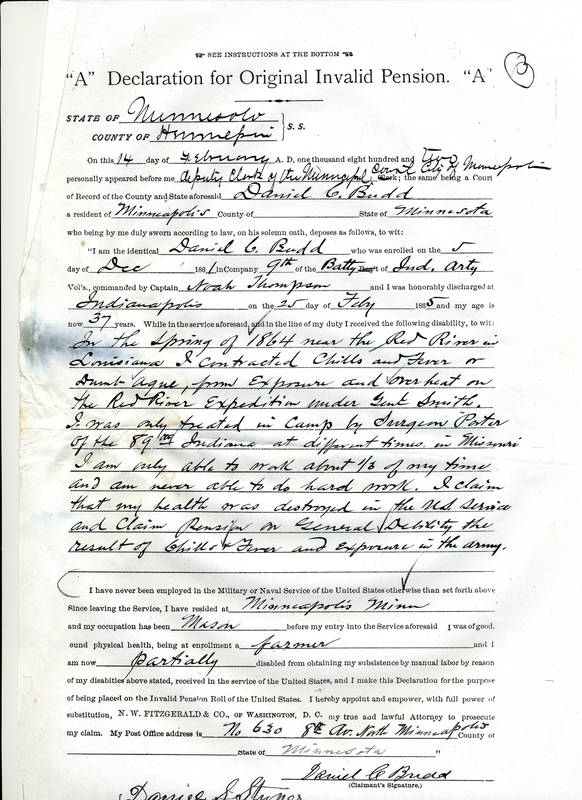 SEE INSTRUCTIONS AT THE BOTTOM
"A" Declaration for Original Invalid Pension. "A"
3
STATE OF Minnesota
COUNTY OF Hennepin } S. S.
On this 14 day of February A. D, one thousand eight hundred and Two
personally appeared before me deputy Clerk of the Municipal Court City of Minneapolis Clerk; the same being a Court
of Record of the County and State aforesaid Daniel C. Budd
a resident of Minneapolis County of State of Minnesota
who being by me duly sworn according to law, on his solemn oath, deposes as follows, to wit:
"I am the identical Daniel C. Budd who was enrolled on the 5
day of Dec 1861 in Company 9th of the Batty Reg't of Ind. Arty
Vol's., commanded by Captain Noah Thompson and I was honorably discharged at
Indianapolis on the 25 day of Feby 1865 and my age is
now 37 years. While in the service aforesaid, and in the line of my duty I received the following disability, to wit:
In the Spring of 1864 near the Red River in
Louisiana I contracted Chills and Fever or
Dumb Ague, from Exposure and overheat on
the Red River Expedition under Genl Smith.
I was only treated in Camp by Surgeon Porter
of the 89th Indiana at different times in Missouri
I am only able to work about 1/3 of my time
and am never able to do hard work. I claim
that my health was destroyed in the U.S. Service
and Claim Pension on General Debility the
result of Chills & Fever and Exposure in the army.
I have never been employed in the Military or Naval Service of the United States otherwise than set forth above
Since leaving the Service, I have resided at Minneapolis Minn
and my occupation has been Mason before my entry into the Service aforesaid I was of good.
ound physical health, being at enrollment a farmer and I
am now Partially disabled from obtaining my subsistence by manual labor by reason
of my disabilities above stated, received in the service of the United States, and I make this Declaration for the purpose
of being placed on the Invalid Pension Roll of the United States. I hereby appoint and empower, with full power of
substitution, N. W. FITZGERALD & CO., OF WASHINGTON, D. C. my true and lawful Attorney to prosecute
my claim. My Post Office address is No 630 8th Av. North Minneapolis County of
State of Minnesota "
Daniel C Budd
(Claimant's Signature.)
Daniel S.